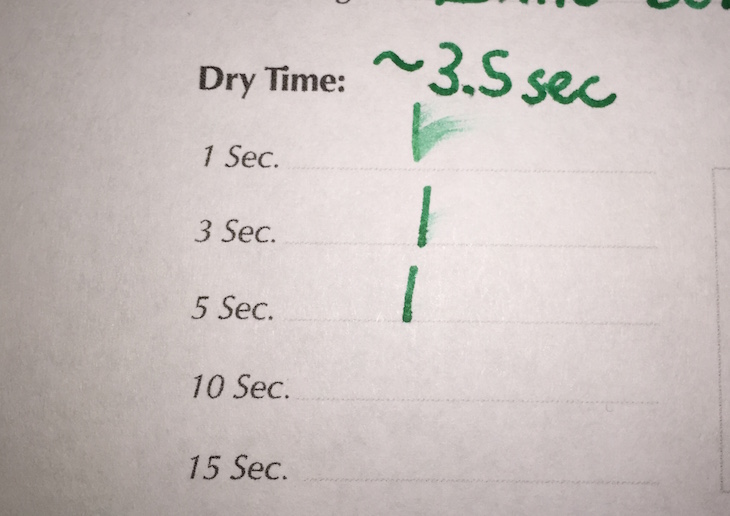 Dry Time: ~3.5 sec
1 Sec.
3 Sec.
5 Sec.
10 Sec.
15 Sec.